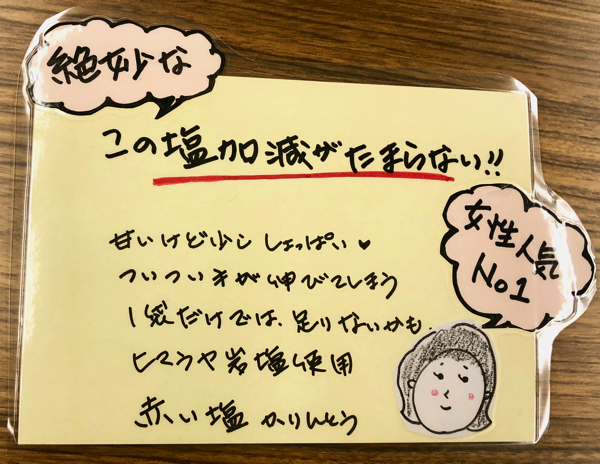 絶妙な
この塩加減がたまらない!!
女性人気
No1
甘いけど少ししょっぱい♥
ついつい手が伸びてしまう
1袋だけでは、足りないかも。
ヒマラヤ岩塩使用
赤い塩 かりんとう